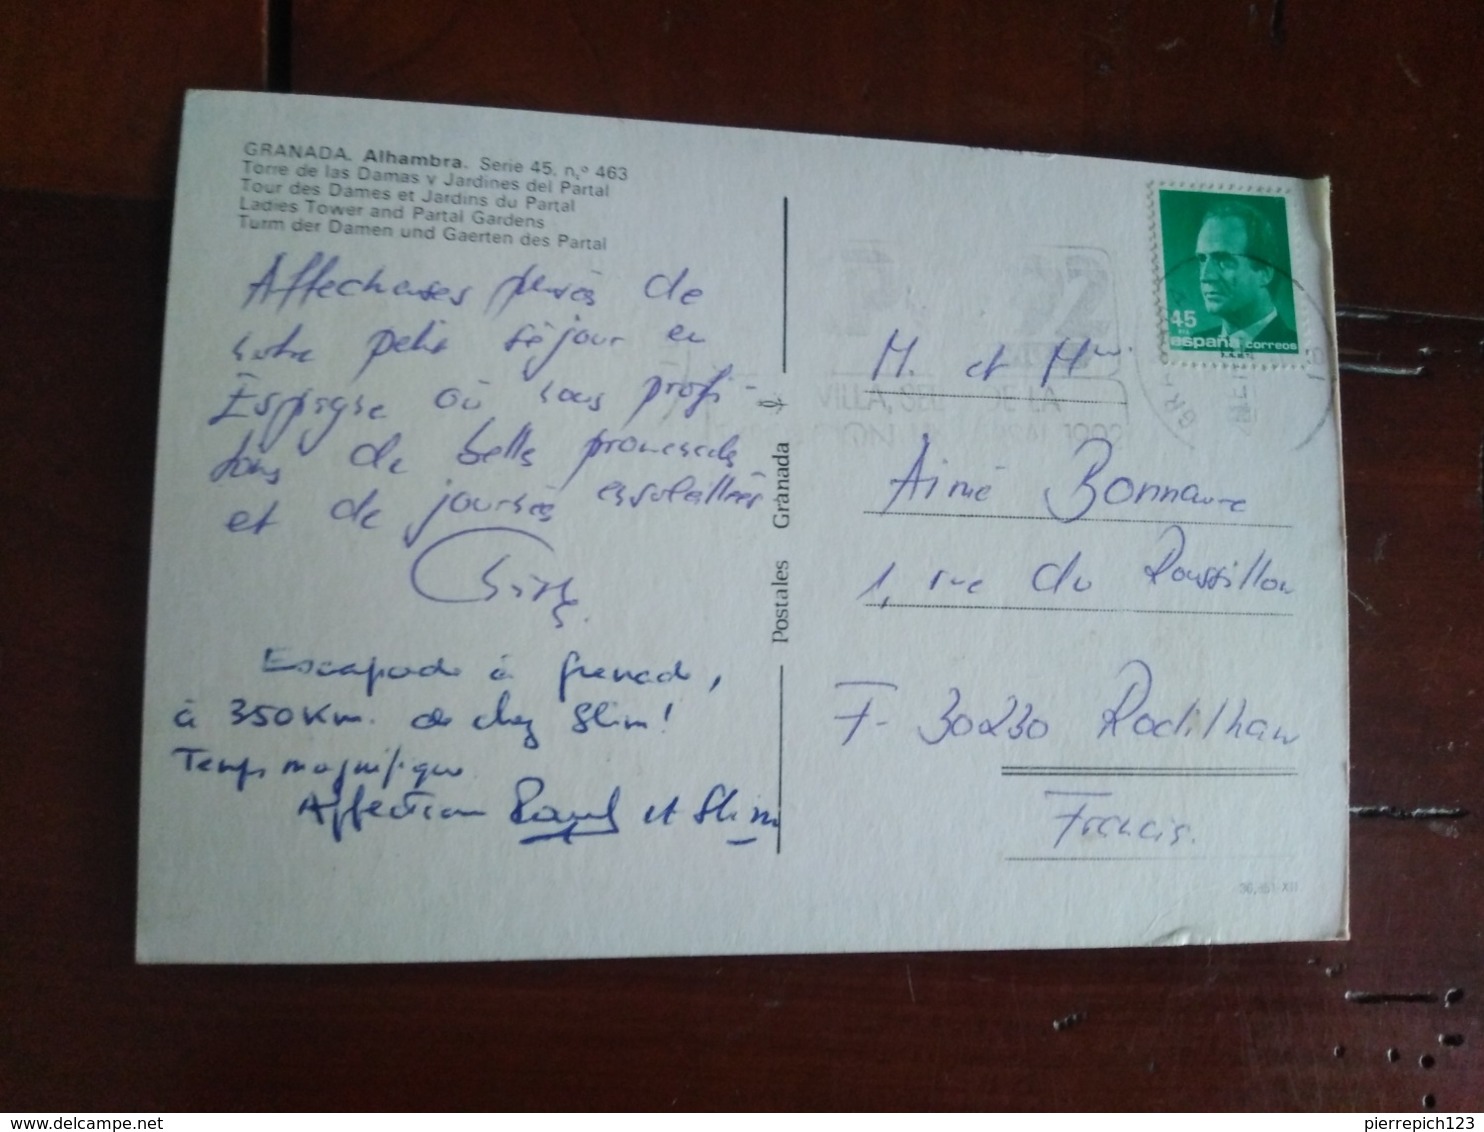 GRANADA. Alhambra. Serie 45, n.º 463
Torre de las Damas y Jardines del Partal
Tour des Dames et Jardins du Partal
Ladies Tower and Partal Gardens
Turm der Damen und Gaerten des Partal
Affectueuses pensées de
notre petit séjour en
Espagne où nous profi-
tons de belles promenades
et de journées ensoleillées
Escapade à Grenade,
à 350 Km. de chez Slim!
Temps magnifique
Affection et Slim
Postales Granada
45
PTA
españa correos
92
VILLA, SE DE LA
1992
M. et Mme.
Aimé Bonnaure
1, rue du Roussillon
F- 30230 Rodilhan
Francia.
pierrepich123